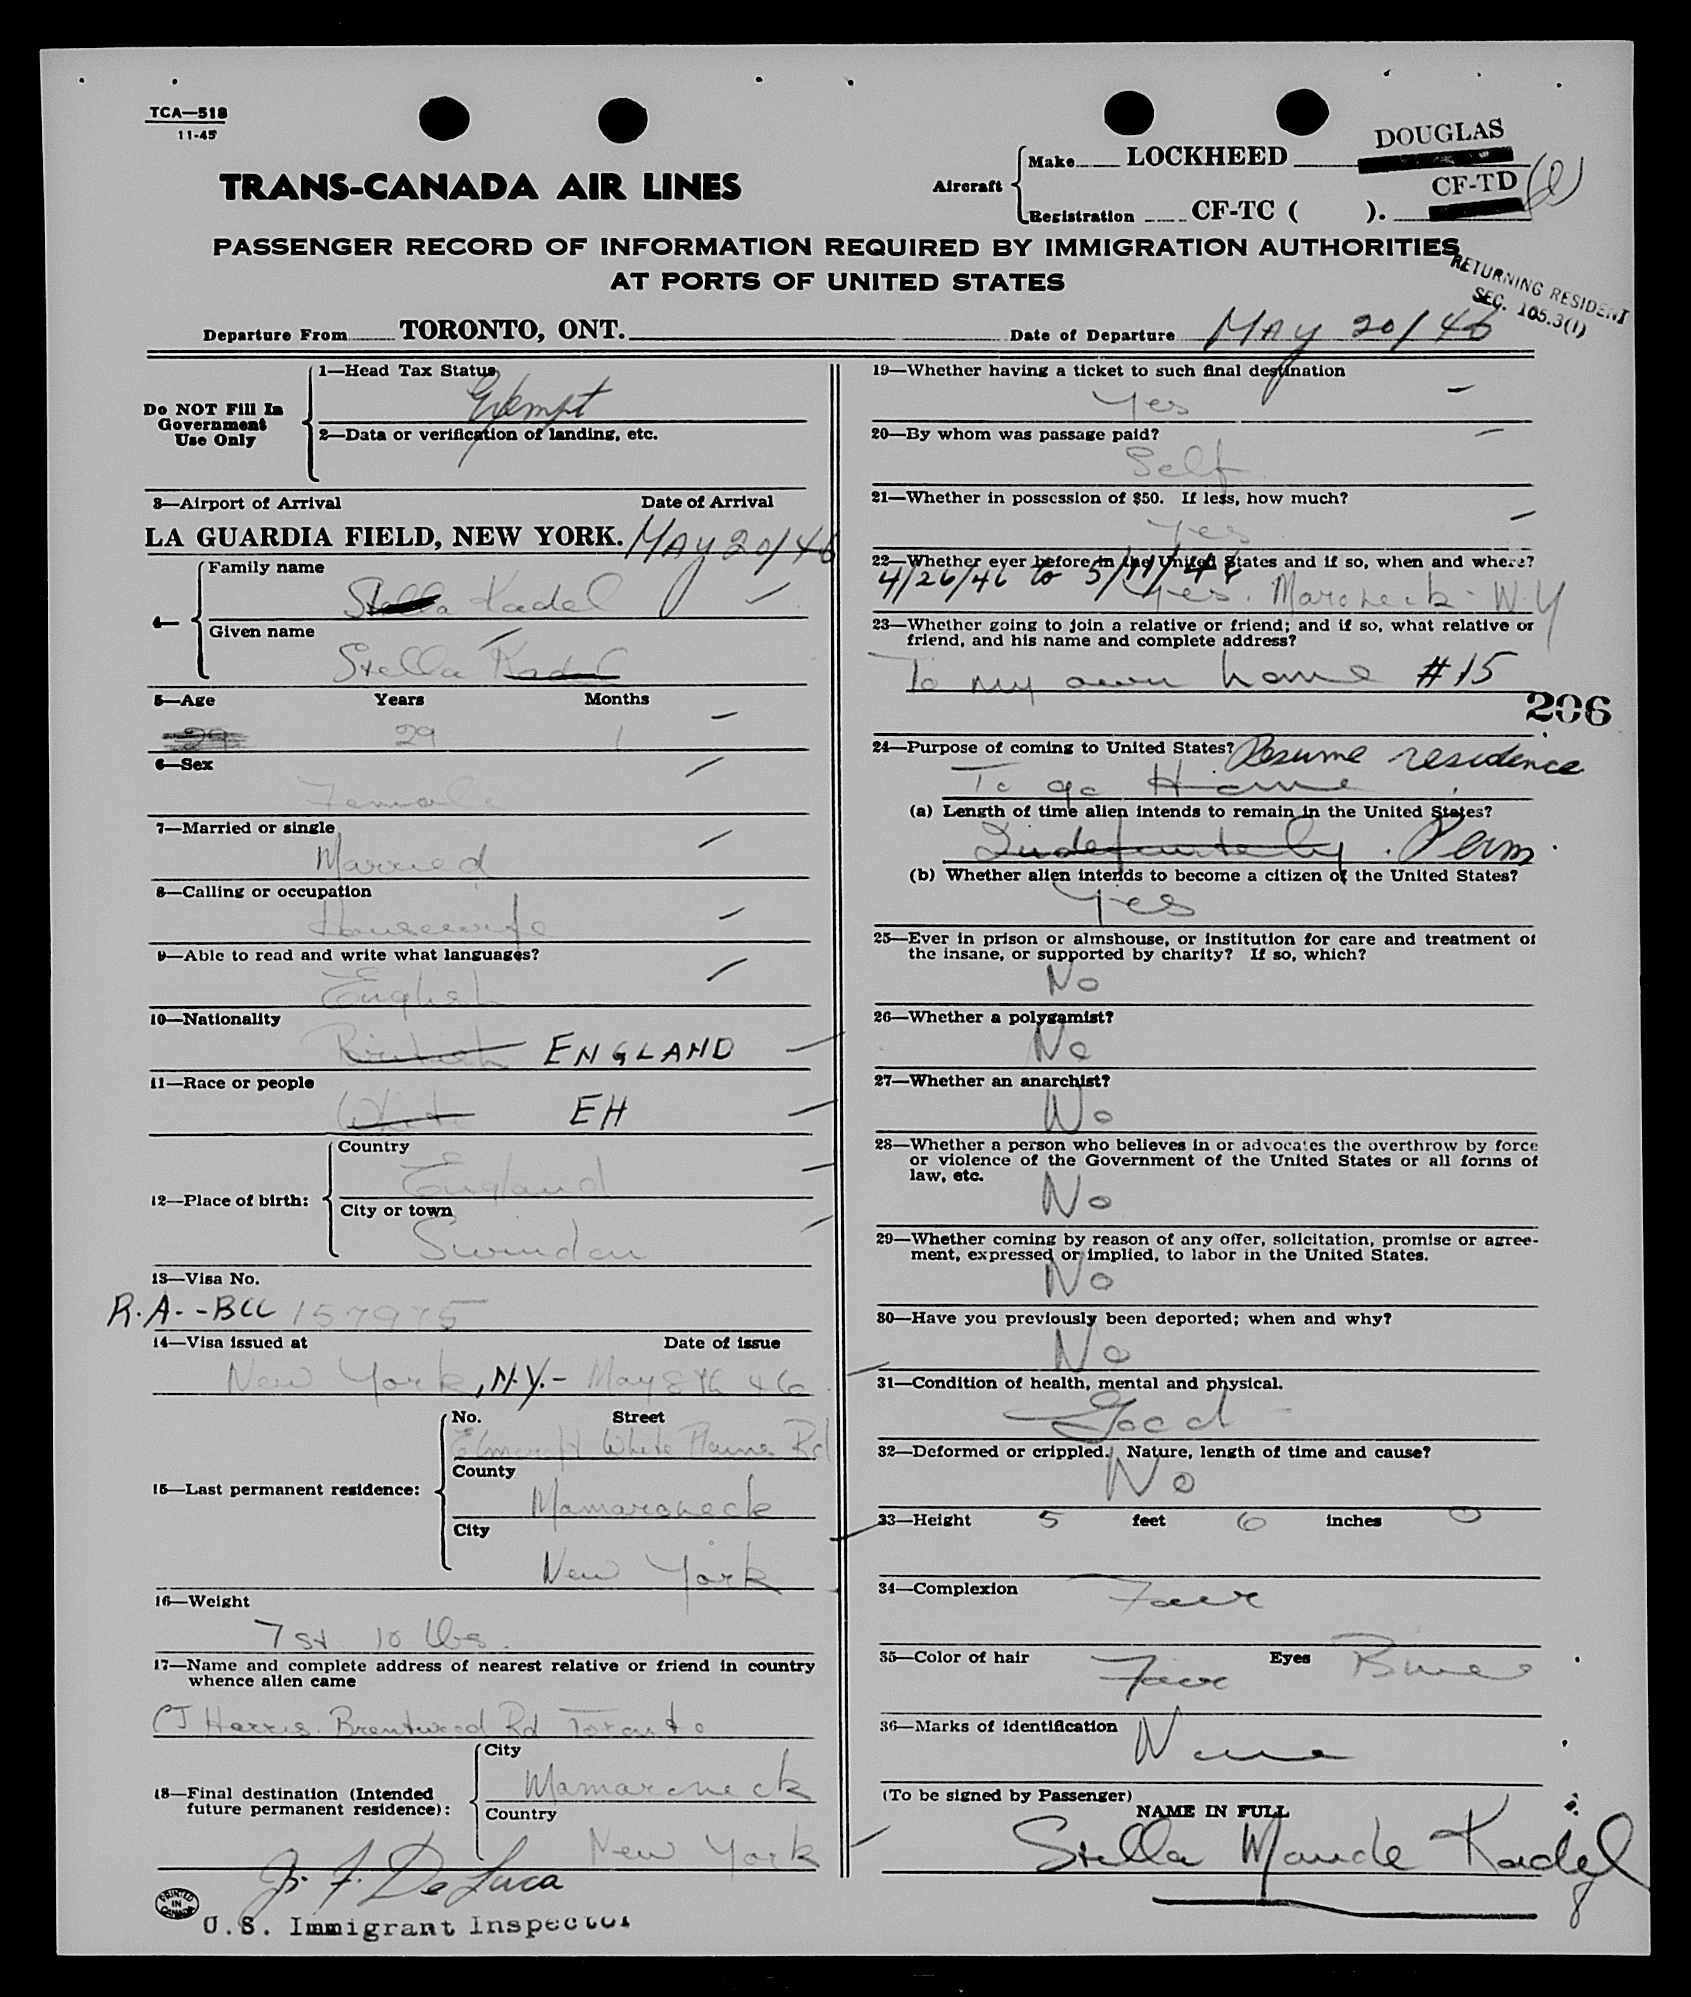 TCA—518
11-45
TRANS-CANADA AIR LINES
Aircraft
Make LOCKHEED DOUGLAS
Registration CF-TC ( ). CF-TD
PASSENGER RECORD OF INFORMATION REQUIRED BY IMMIGRATION AUTHORITIES
AT PORTS OF UNITED STATES
RETURNING RESIDENT
SEC. 105.3(1)
Departure From TORONTO, ONT. Date of Departure MAY 20/46
Do NOT Fill In
Government
Use Only
1—Head Tax Status
Exempt
2—Data or verification of landing, etc.
3—Airport of Arrival Date of Arrival
LA GUARDIA FIELD, NEW YORK. MAY 20/46
4—
Family name
Stella Kadel
Given name
Stella Kadel
5—Age Years Months
29 29 1
6—Sex
Female
7—Married or single
Married
8—Calling or occupation
Housewife
9—Able to read and write what languages?
English
10—Nationality
British ENGLAND
11—Race or people
White EH
12—Place of birth:
Country
England
City or town
Swindon
13—Visa No.
R.A.--BCC 157975
14—Visa issued at Date of issue
New York, N.Y.- May 8th 46
15—Last permanent residence:
No. Street
White Plains Rd
County
Mamaroneck
City
New York
16—Weight
7 st 10 lbs.
17—Name and complete address of nearest relative or friend in country
whence alien came
CJ Harris. Brentwood Rd Toronto
18—Final destination (Intended
future permanent residence):
City
Mamaroneck
Country
New York
J. F. De Luca
PRINTED
IN
CANADA
U.S. Immigrant Inspector
19—Whether having a ticket to such final destination
Yes
20—By whom was passage paid?
Self
21—Whether in possession of $50. If less, how much?
Yes
22—Whether ever before in the United States and if so, when and where?
4/26/46 to 5/11/46
Yes. Maroneck - N.Y
23—Whether going to join a relative or friend; and if so, what relative or
friend, and his name and complete address?
To my own home #15
206
24—Purpose of coming to United States? Resume residence
To go Home
(a) Length of time alien intends to remain in the United States?
Indefinitely. Perm.
(b) Whether alien intends to become a citizen of the United States?
Yes
25—Ever in prison or almshouse, or institution for care and treatment of
the insane, or supported by charity? If so, which?
No
26—Whether a polygamist?
No
27—Whether an anarchist?
No
28—Whether a person who believes in or advocates the overthrow by force
or violence of the Government of the United States or all forms of
law, etc.
No
29—Whether coming by reason of any offer, solicitation, promise or agree-
ment, expressed or implied, to labor in the United States.
No
30—Have you previously been deported; when and why?
No
31—Condition of health, mental and physical.
Good
32—Deformed or crippled. Nature, length of time and cause?
No
33—Height 5 feet 6 inches 0
34—Complexion Fair
35—Color of hair Fair Eyes Blue
36—Marks of identification None
(To be signed by Passenger)
NAME IN FULL
Stella Maude Kadel